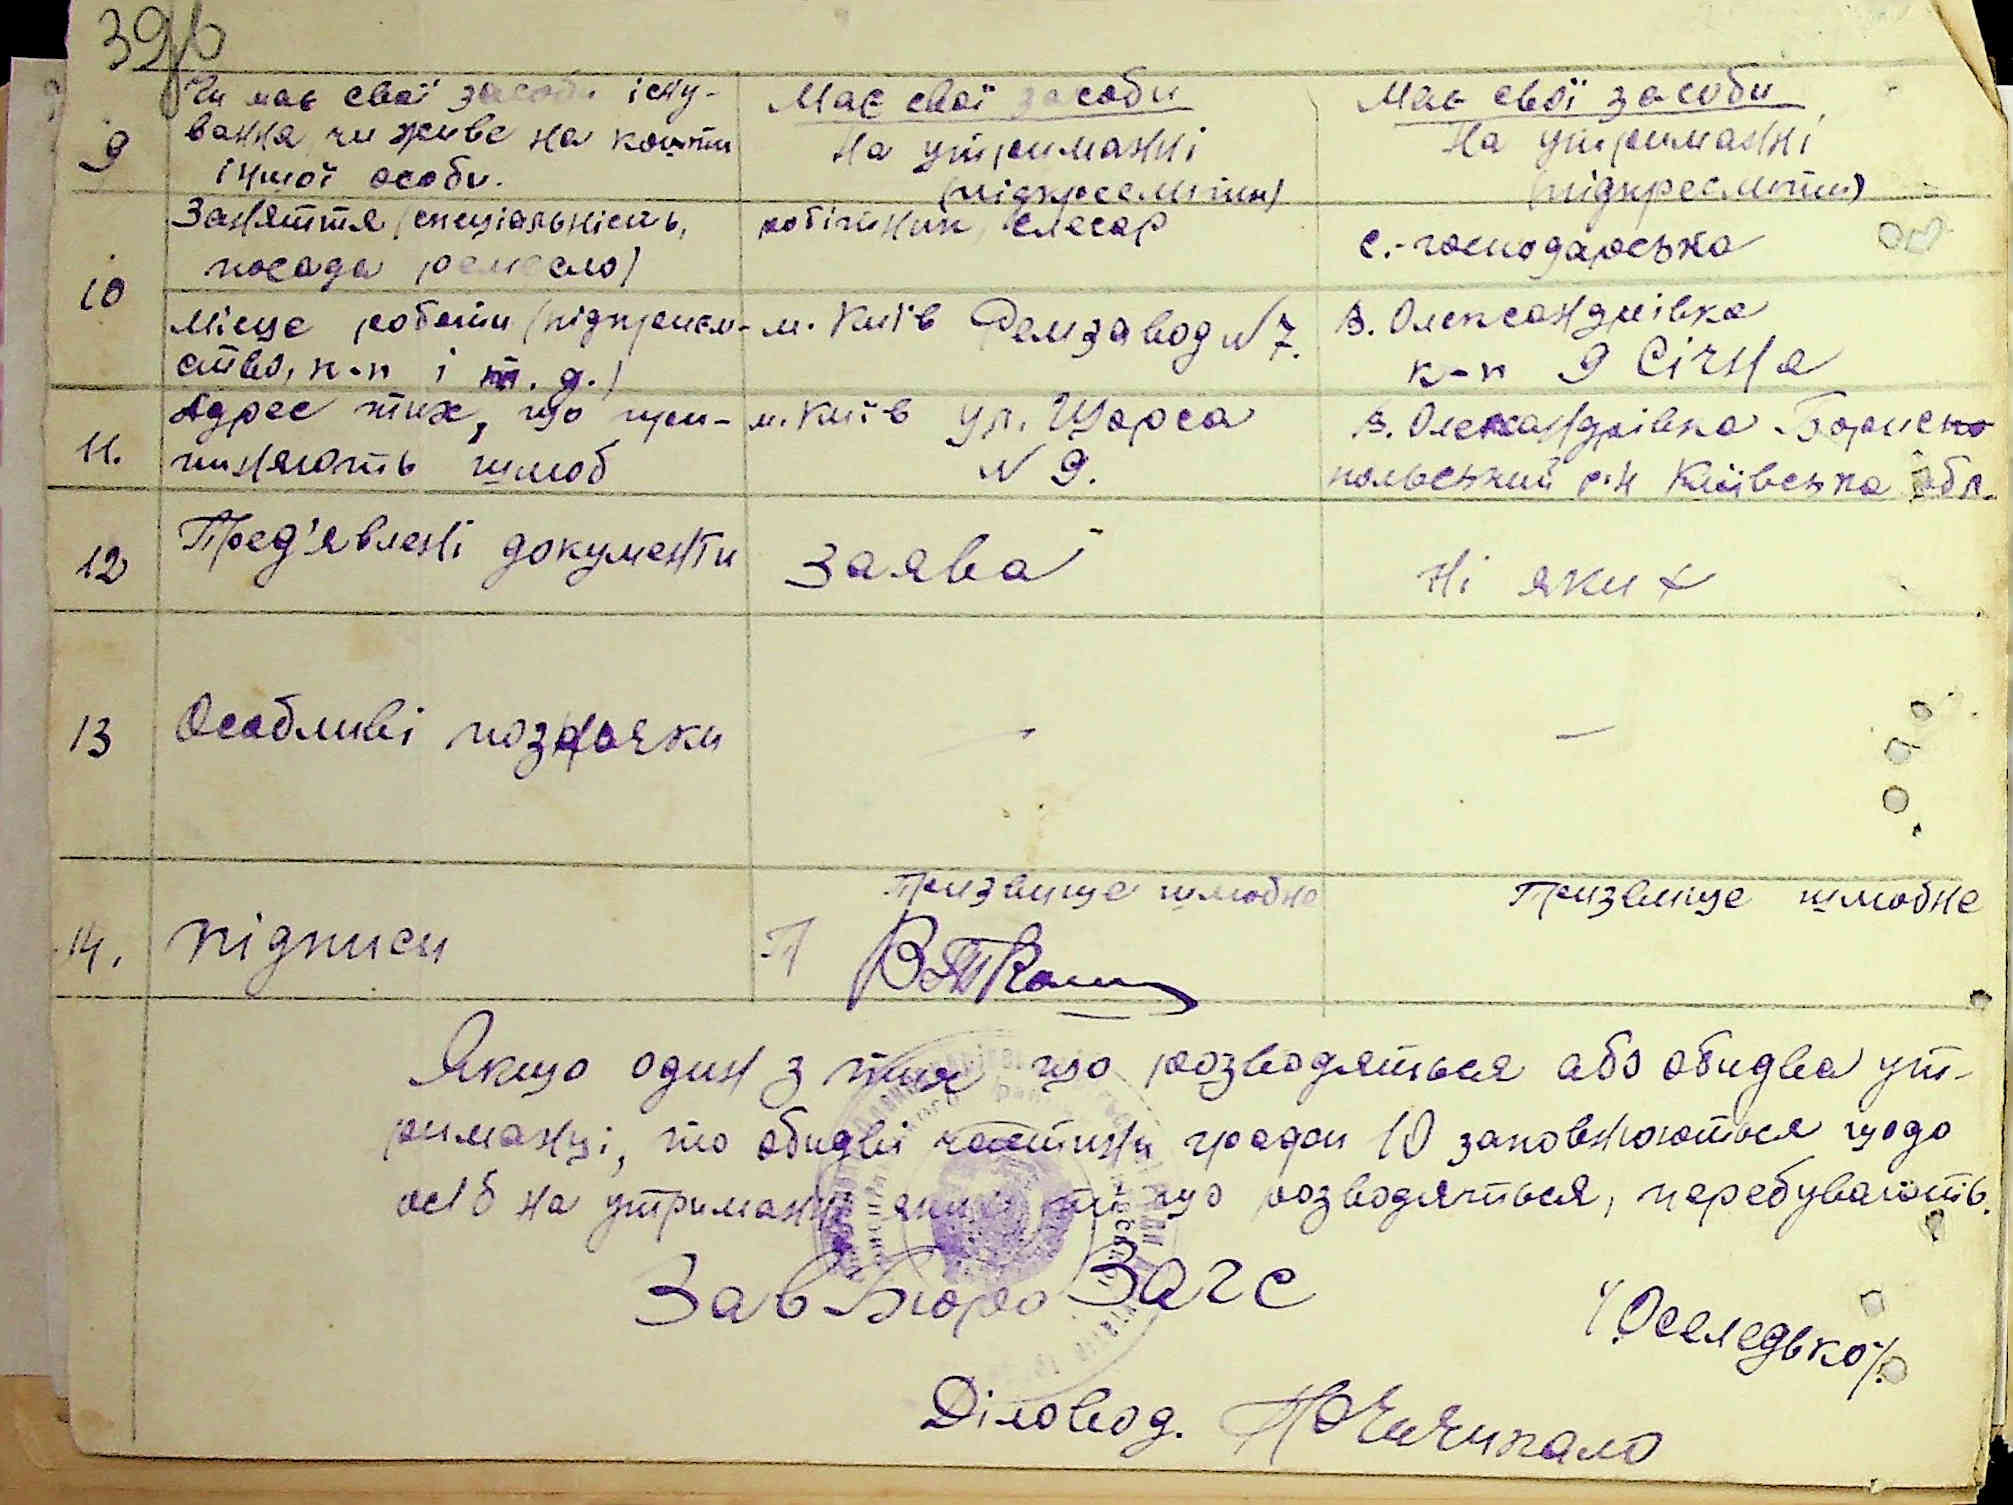 39
9
Чи має свої засоби існу-
вання, чи живе на кошти
іншої особи.
Має свої засоби
На утриманні
(підкреслити)
Має свої засоби
На утриманні
(підкреслити)
10
Заняття (спеціальність,
посада ремесло)
робітник, слесар
с.-господарська
Місце роботи (підприєм-
ство, к-п і т. д.)
м. Київ Ремзавод №7.
В. Олександрівка
к-п 9 Січня
11.
Адрес тих, що при-
пиняють шлюб
м. Київ ул. Щорса
№ 9.
В. Олександрівка Борисно
польський р-н Київська обл.
12
Пред'явлені документи
Заява
Ні яких
13
Особливі позначки
-
-
14.
підписи
Призвище шлюбне
П
Призвище шлюбне
Якщо один з тих що розводяться або обидва ут-
риманці, то обидві частини графи 10 заповнюються щодо
осіб на утриманні яких ті що розводяться, перебувають.
Зав Бюро Загс
(Оселедько)
Діловод.